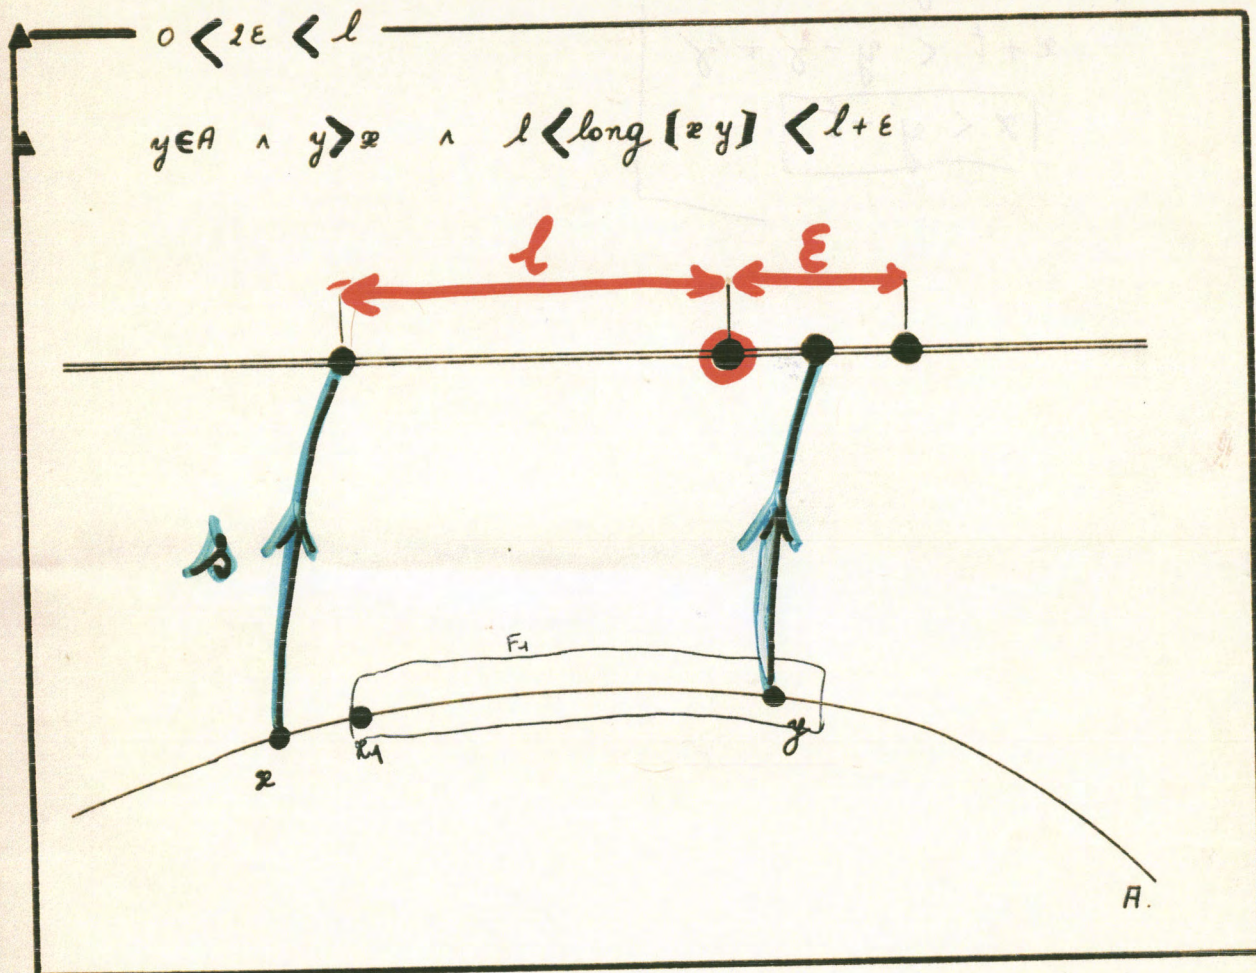 0 < 2ε < l
y ∈ A ∧ y > x ∧ l < long [x y] < l + ε
l ε
s
F1
x x1 y
A.